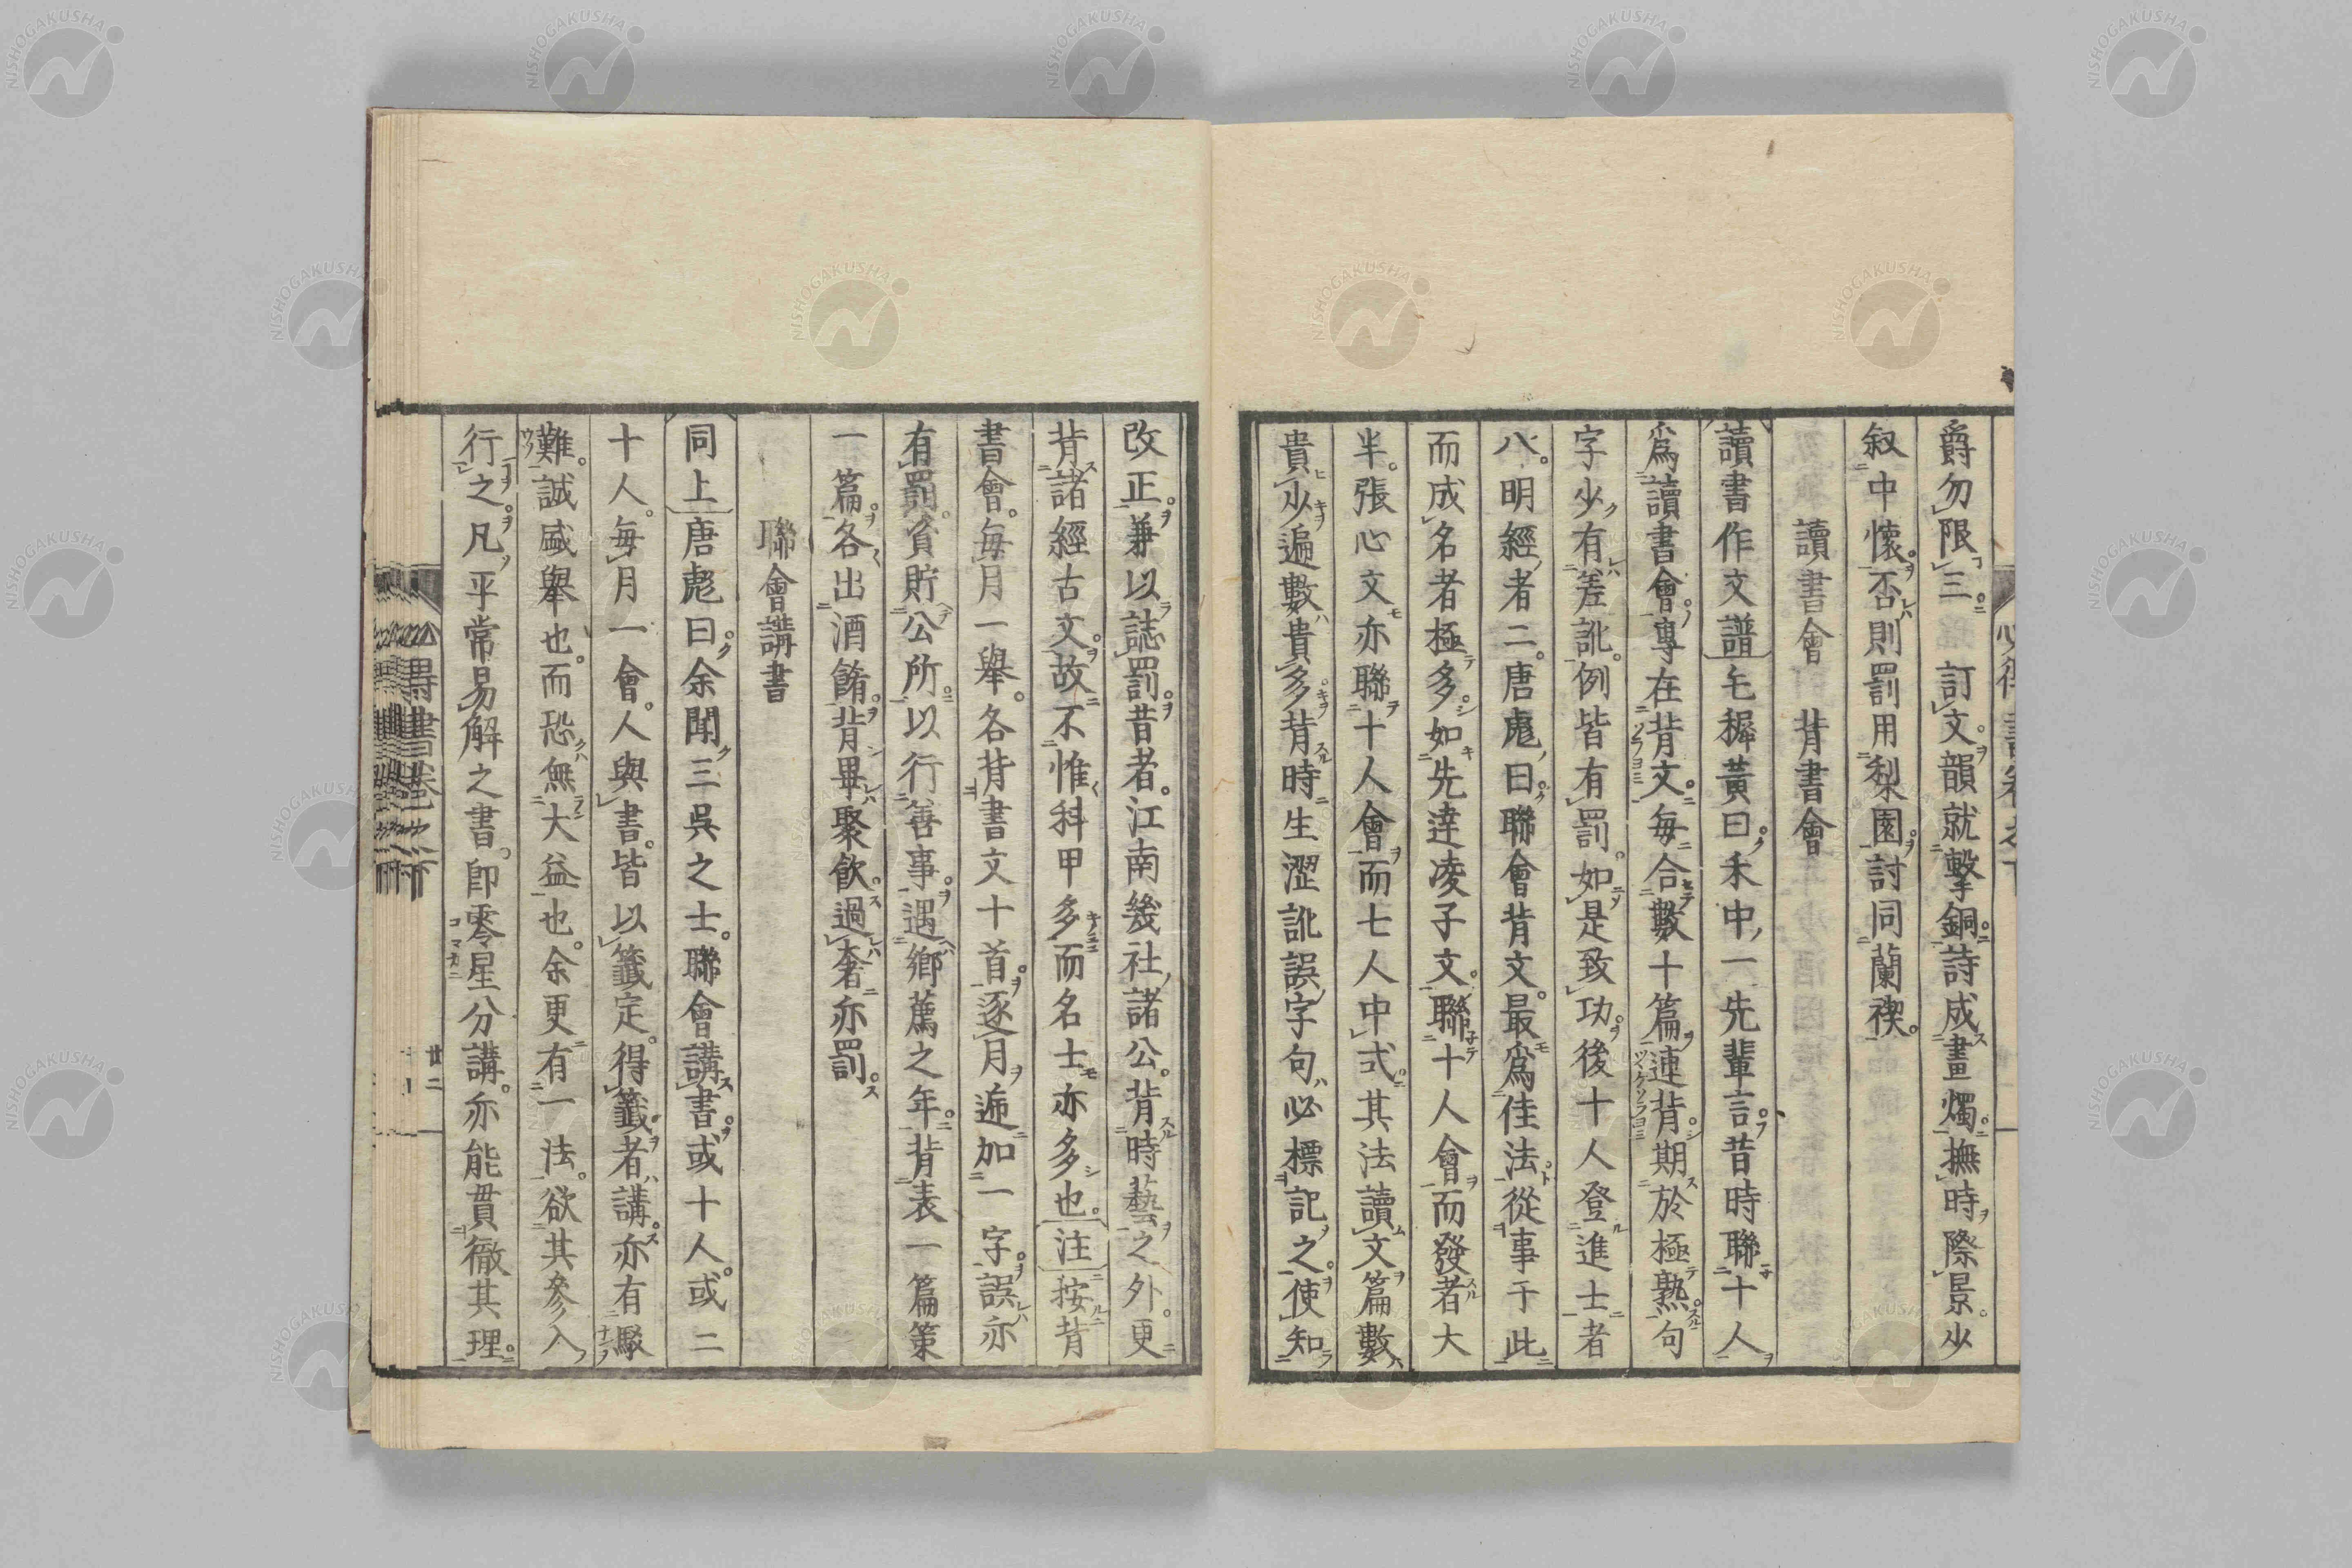 爵勿限三訂文韻就擊銅詩成畫燭撫時際景少
叙中懷否則罰用梨園討同蘭禊
讀書會 背書會
讀書作文譜毛穉黃曰禾中一先輩言昔時聯十人
爲讀書會專在背文毎合數十篇連背期於極熟句
字少有差訛例皆有罰如是致功後十人登進士者
八明經者二唐彪曰聯會背文最爲佳法從事于此
而成名者極多如先達凌子文聯十人會而發者大
半張心文亦聯十人會而七人中式其法讀文篇數
貴少遍數貴多背時生澀訛誤字句必標記之使知
改正兼以誌罰昔者江南幾社諸公背時藝之外更
背諸經古文故不惟科甲多而名士亦多也注按背
書會毎月一舉各背書文十首逐月遞加一字誤亦
有罰資貯公所以行善事遇鄉薦之年背表一篇策
一篇各出酒餚背畢聚飲過奢亦罰
聯會講書
同上唐彪曰余聞三吳之士聯會講書或十人或二
十人毎月一會人與書皆以籤定得籤者講亦有駁
難誠盛舉也而恐無大益也余更有一法欲其參入
行之凡平常易解之書卽零星分講亦能貫徹其理
得書卷之下
廿二